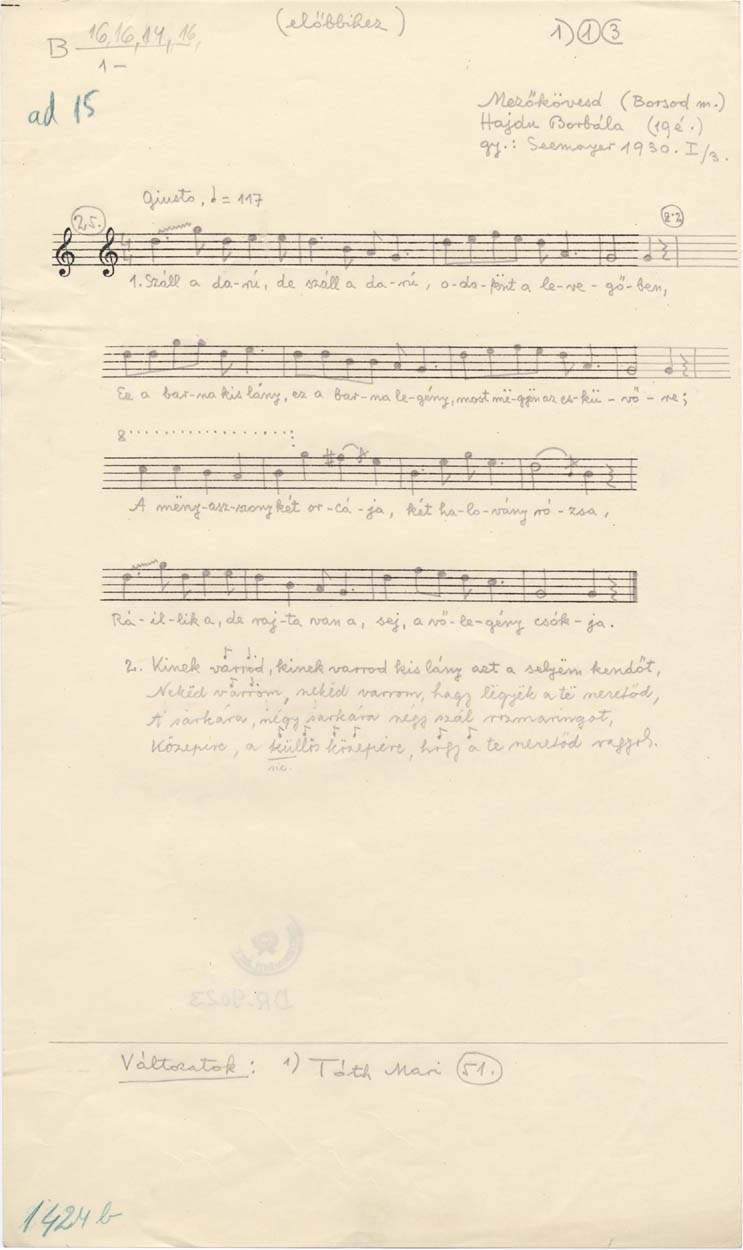 (előbbihez)
B 16,16,14,16,
1–
1) 1 3
ad 15
Mezőkövesd (Borsod m.)
Hajdu Borbála (19 é.)
gy.: Seemayer 1930. I/3.
Giusto, ♩= 117
2.5.
2·2
1. Száll a da-rú, de száll a da-rú, o-da-fënt a le-ve-gő-ben,
Ez a bar-na kis lány, ez a bar-na le-gény, most më-gyën az es-kü-vő-re;
8
A mëny-asz-szony két or-cá-ja, két ha-lo-vány ró-zsa,
Rá-il-lik a, de raj-ta van a, sej, a vő-le-gény csók-ja.
2. Kinek varrod, kinek varrod kis lány azt a selyëm kendőt,
Nekëd varrom, nekëd varrom, hagy lëgyék a të szeretőd,
A sarkára, négy sarkára négy szál rozmaringot,
Közepire, a küllős közepire, hogy a te szeretőd vagyok.
sic.
DR.9023
Változatok: 1) Tóth Mari 51.
1424 b